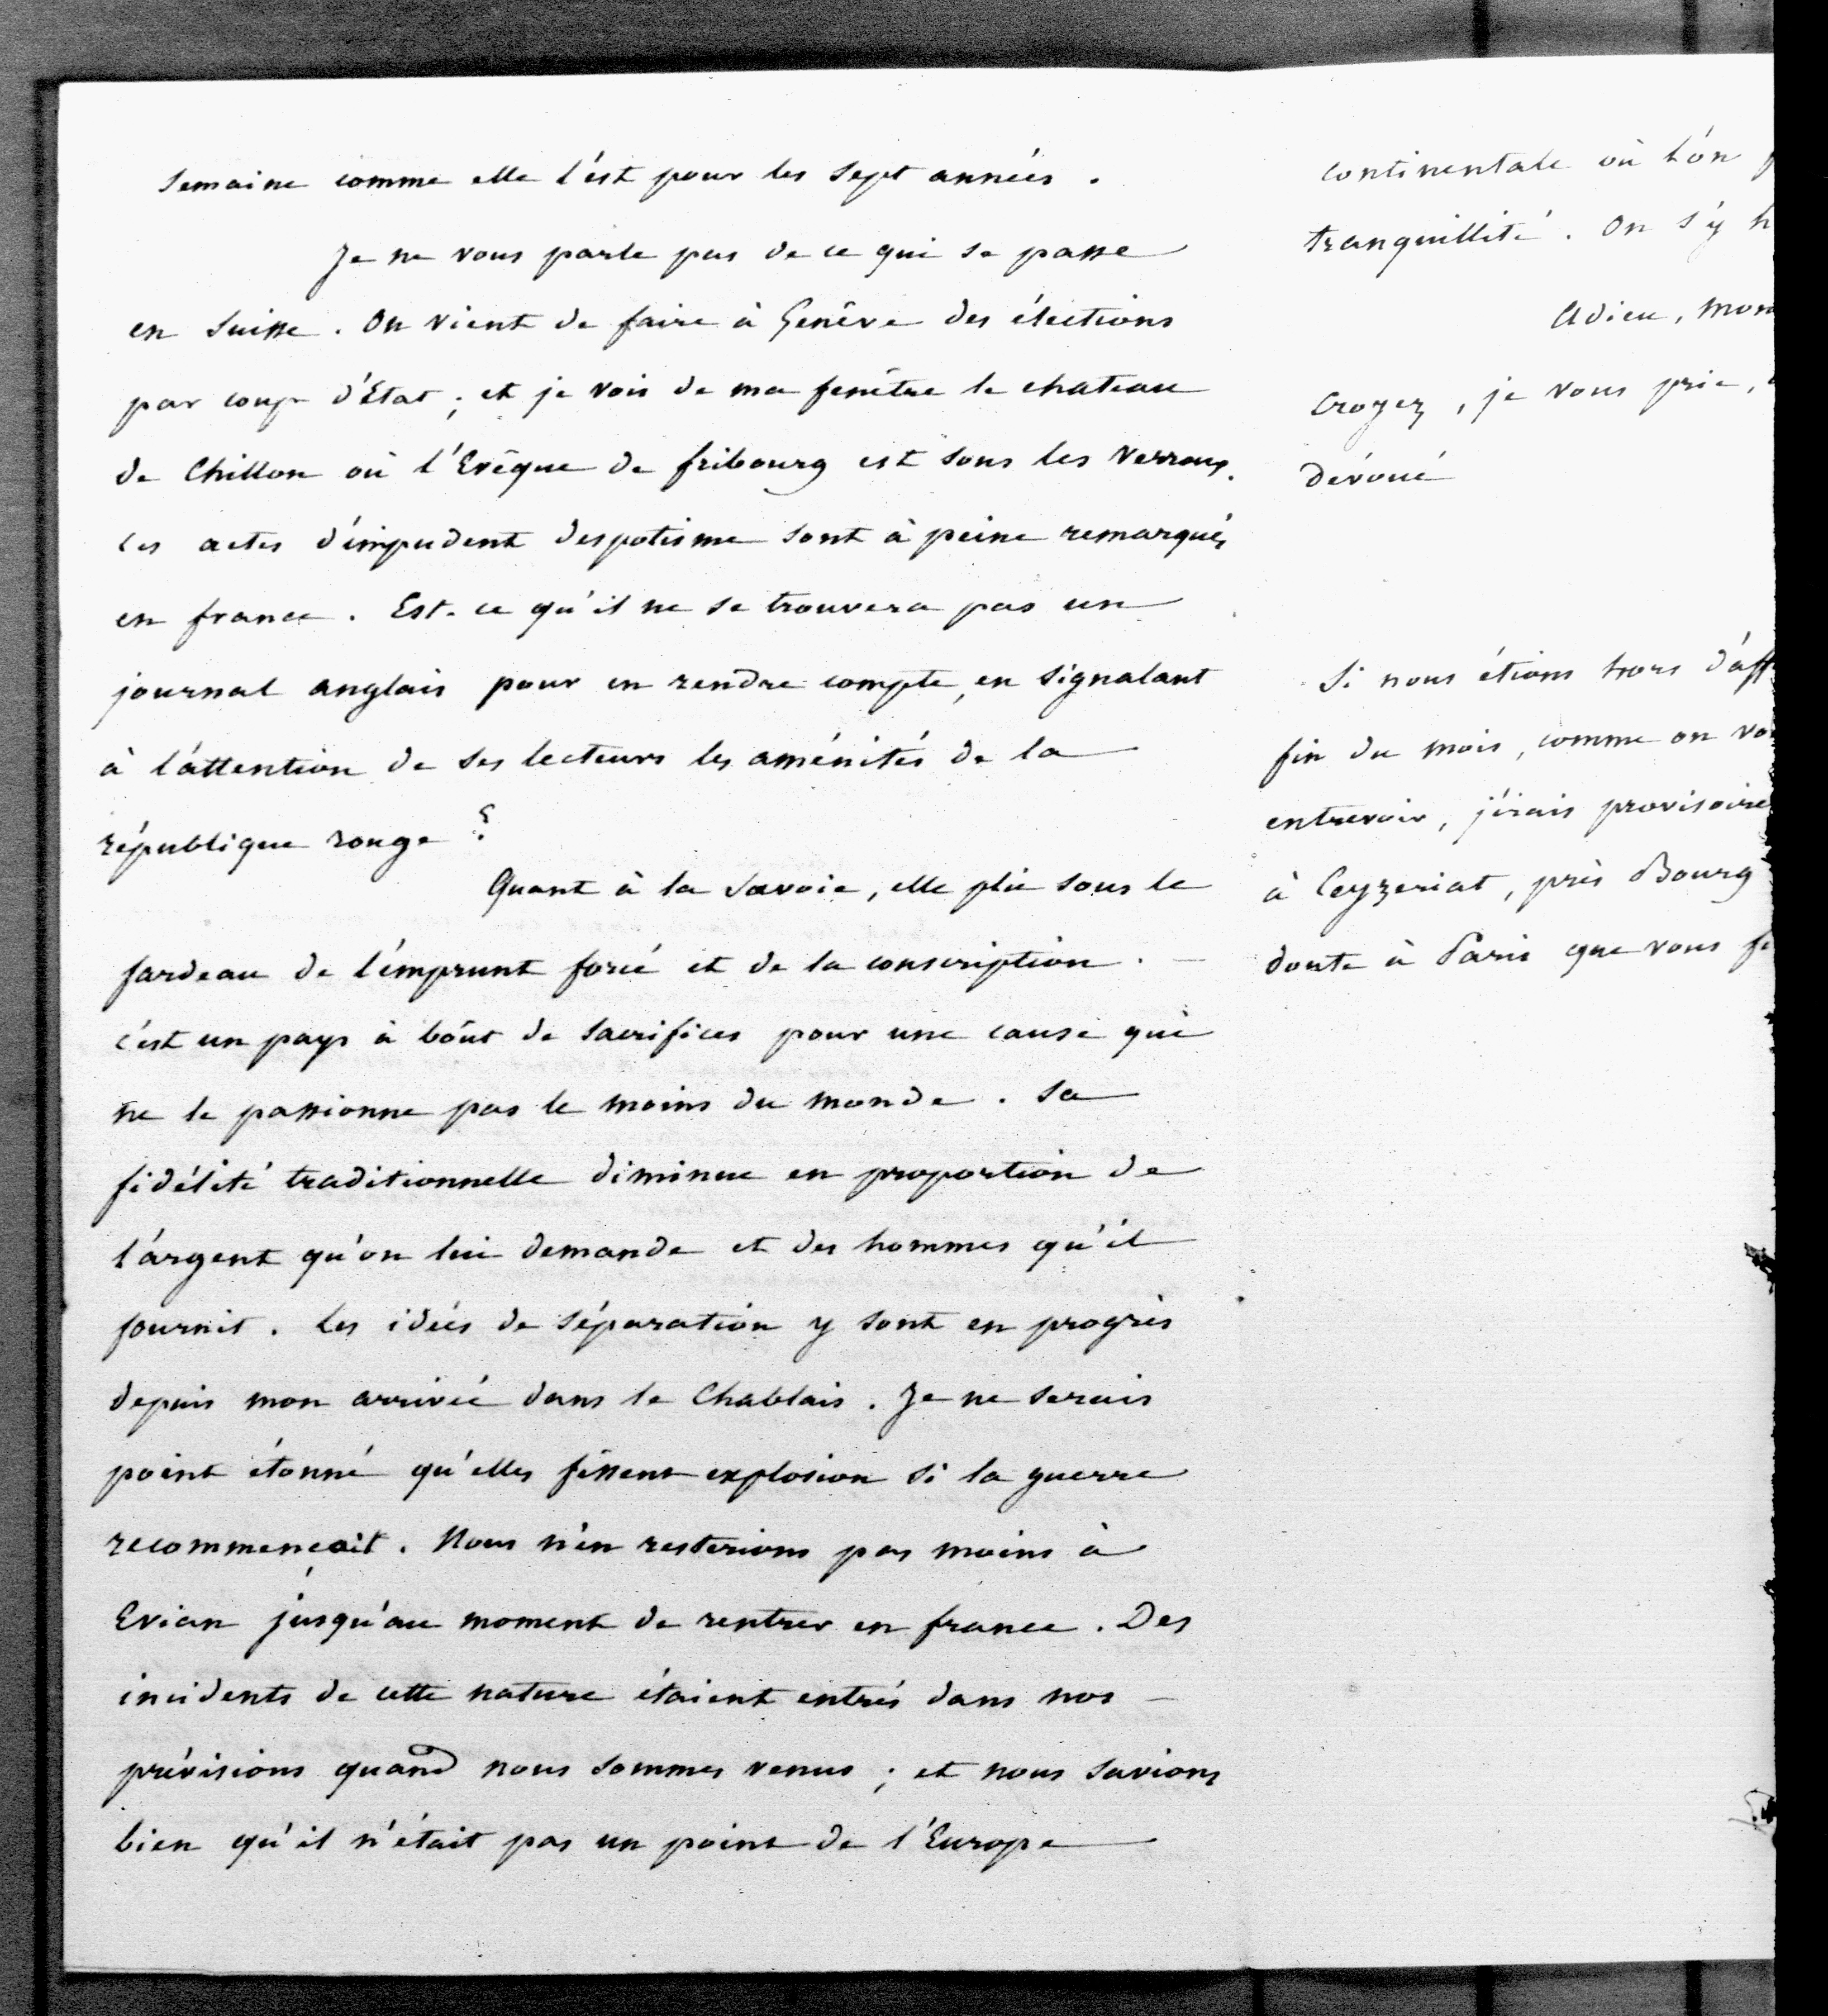 semaine comme elle l'est pour les sept années.
Je ne vous parle pas de ce qui se passe
en Suisse. On vient de faire à Genêve des élections
par coup d'Etat; et je vois de ma fenêtre le chateau
de Chillon où l'Evêque de fribourg est sous les verroux.
Ces actes d'impudent despotisme sont à peine remarqués
en france. Est-ce qu'il ne se trouvera pas un
journal anglais pour en rendre compte, en signalant
à l'attention de ses lecteurs les aménités de la
république rouge ?
Quant à la Savoie, elle plie sous le
fardeau de l'emprunt forcé et de la conscription. —
c'est un pays à bout de sacrifices pour une cause qui
ne le passionne pas le moins du monde. Sa
fidélité traditionnelle diminue en proportion de
l'argent qu'on lui demande et des hommes qu'il
fournit. Les idées de séparation y sont en progrès
depuis mon arrivée dans le Chablais. Je ne serais
point étonné qu'elles fissent explosion si la guerre
recommençait. Nous n'en resterions pas moins à
Evian jusqu'au moment de rentrer en france. Des
incidents de cette nature étaient entrés dans nos —
prévisions quand nous sommes venus; et nous savions
bien qu'il n'était pas un point de l'Europe
continentale où l'on
tranquillité. On s'y
Adieu, mon
Croyez, je vous prie,
dévoué
Si nous étions hors d'aff
fin du mois, comme on
entrevoir, j'irais provisoire
à Ceyzeriat, près Bourg
doute à Paris que vous